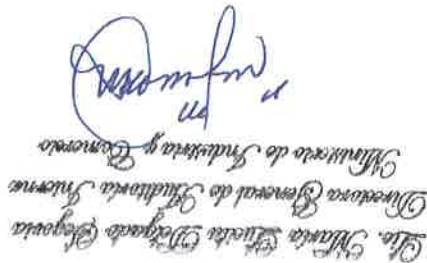 Lic. María Lucila Delgado Segovia
Directora General de Auditoría Interna
Ministerio de Industria y Comercio